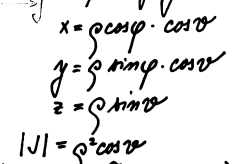 x = ρ cosφ · cosϑ
y = ρ sinφ · cosϑ
z = ρ sinϑ
|J| = ρ² cosϑ